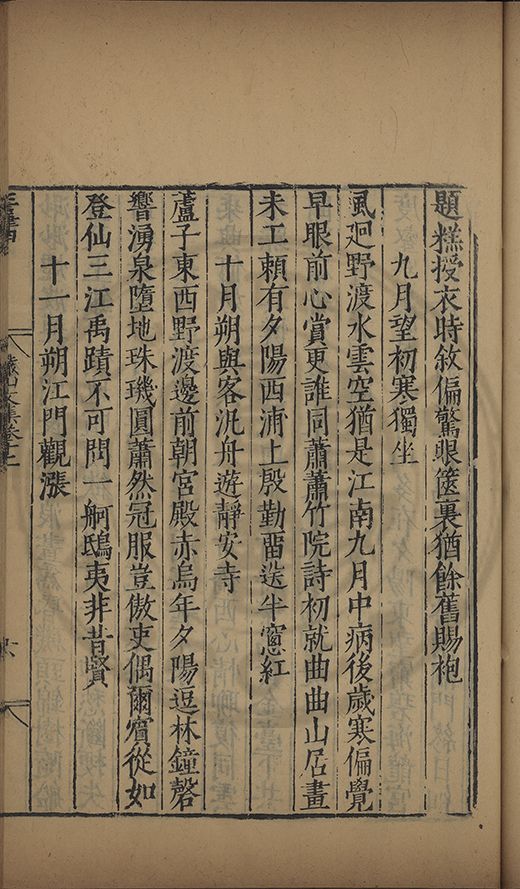 題糕授衣時敘偏驚眼篋裏猶餘舊賜袍
九月望初寒獨坐
風廻野渡水雲空猶是江南九月中病後歲寒偏覺
早眼前心賞更誰同蕭蕭竹院詩初就曲曲山居畫
未工頼有夕陽西浦上殷勤畱送半窻紅
十月朔與客汎舟遊靜安寺
蘆子東西野渡邊前朝宮殿赤烏年夕陽逗林鐘磬
響湧泉墮地珠璣圓蕭然冠服豈傲吏偶爾賓從如
登仙三江禹蹟不可問一舸鴟夷非昔賢
十一月朔江門觀漲